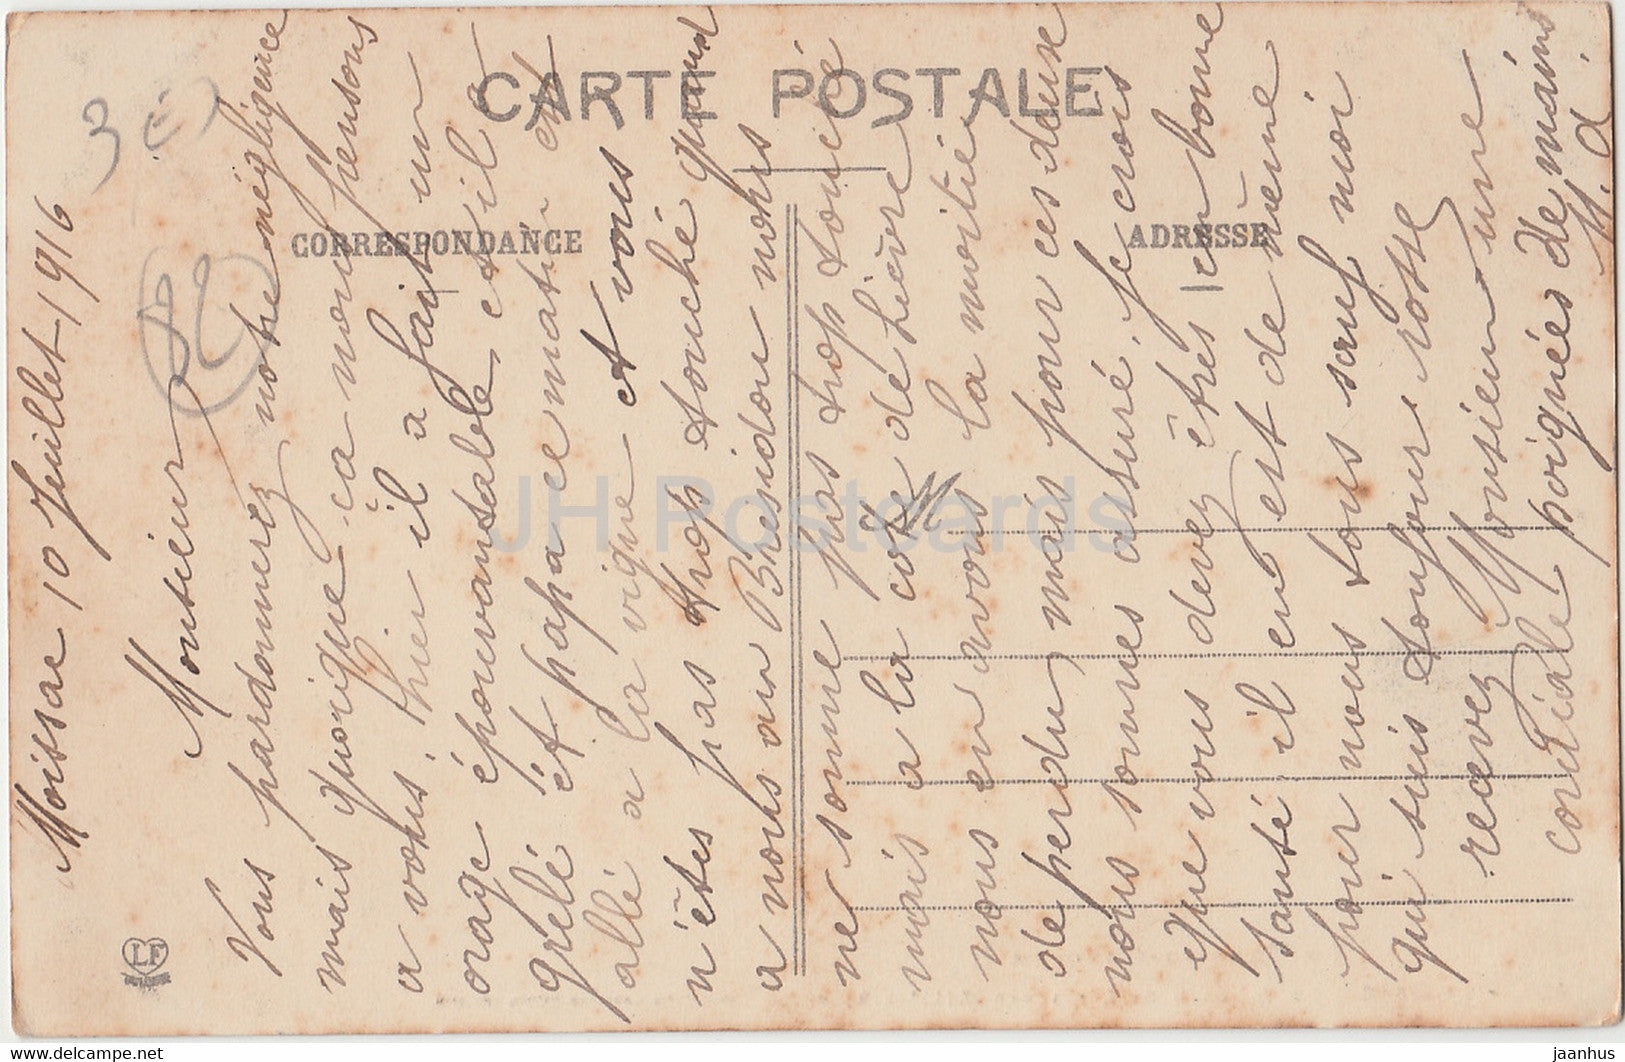 CARTE POSTALE
CORRESPONDANCE
ADRESSE
Moissac 10 Juillet 1916
Monsieur
Vous pardonnerez notre négligence
mais quoique ça nous pensons
a vous. Hier il a fait un
orage épouvantable et il a
grêlé et papa ce matin est
allé a la vigne et vous
n'êtes pas trop touché quand
a nous au Brésidou nous
ne somme pas trop touché
mais a la côte de Lièvre
nous en avons la moitié
de perdu, mais pour ces deuse
nous sommes assuré. Je crois
que vous devez êtres en bonne
santé il en est de même
pour nous tous sauf moi
qui suis toujour rosse
recevez Monsieur une
cordiale poignées de mains
M. A.
3
82
LF
M
JH Postcards
jaanhus
www.delcampe.net